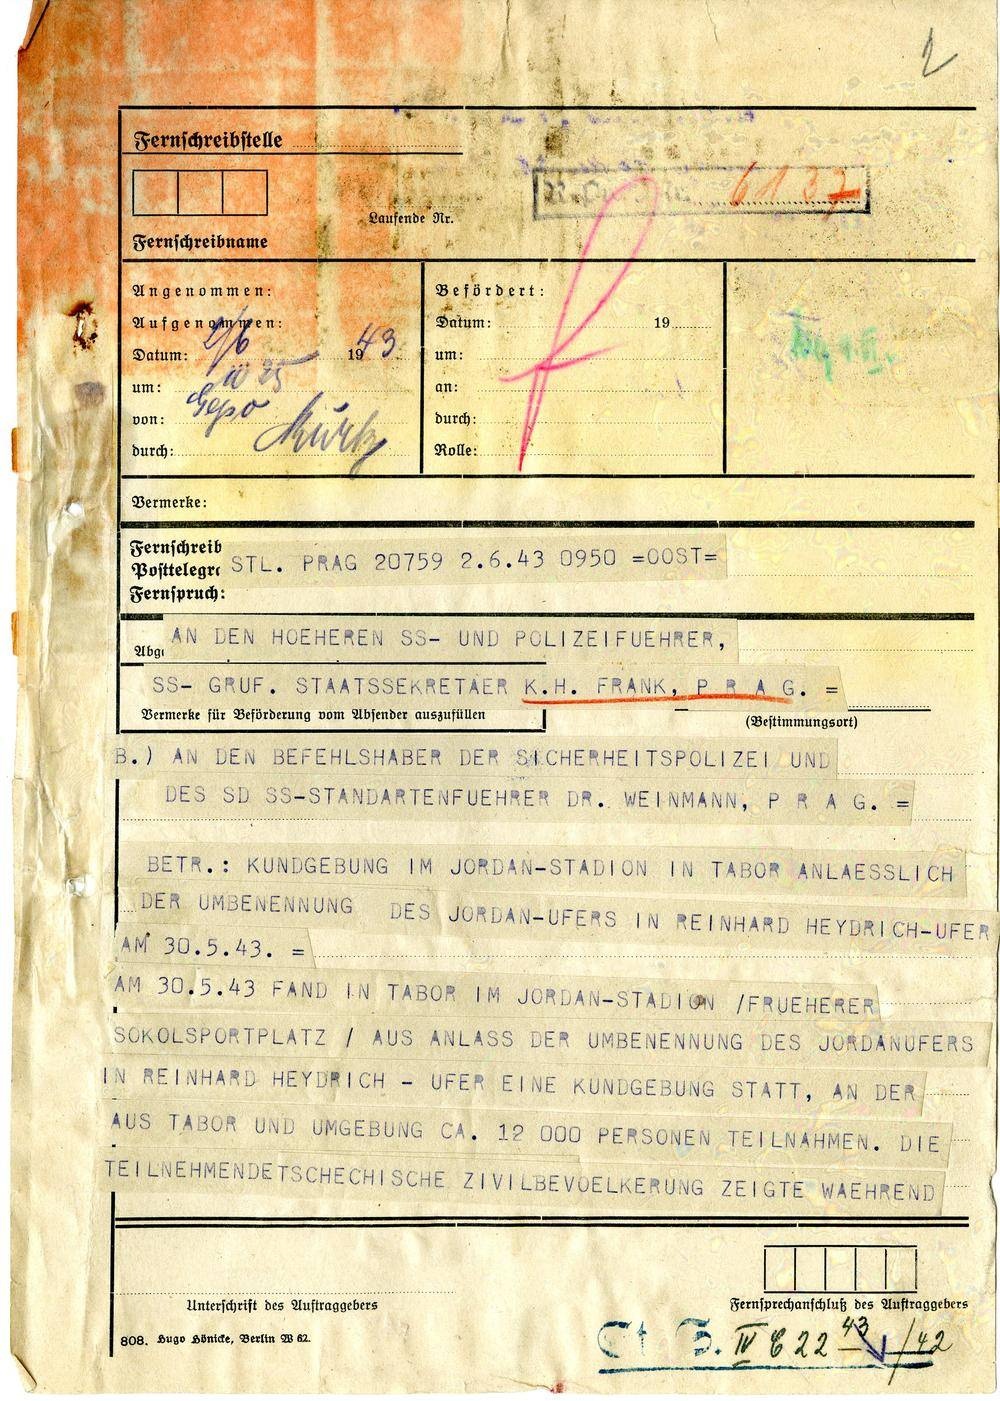 2
Fernschreibstelle
6137
Laufende Nr.
Fernschreibname
Angenommen:
Aufgenommen:
Datum: 2/6 1943
um: 10 25
von: Gepo
durch:
Befördert:
Datum: 19
um:
an:
durch:
Rolle:
Vermerke:
Fernschreib
Posttelegr
Fernspruch:
STL. PRAG 20759 2.6.43 0950 =OOST=
AN DEN HOEHEREN SS- UND POLIZEIFUEHRER,
Abg
SS- GRUF. STAATSSEKRETAER K.H. FRANK, P R A G. =
Vermerke für Beförderung vom Absender auszufüllen
(Bestimmungsort)
B.) AN DEN BEFEHLSHABER DER SICHERHEITSPOLIZEI UND
DES SD SS-STANDARTENFUEHRER DR. WEINMANN, P R A G. =
BETR.: KUNDGEBUNG IM JORDAN-STADION IN TABOR ANLAESSLICH
DER UMBENENNUNG DES JORDAN-UFERS IN REINHARD HEYDRICH-UFER
AM 30.5.43. =
AM 30.5.43 FAND IN TABOR IM JORDAN-STADION /FRUEHERER
SOKOLSPORTPLATZ / AUS ANLASS DER UMBENENNUNG DES JORDANUFERS
IN REINHARD HEYDRICH - UFER EINE KUNDGEBUNG STATT, AN DER
AUS TABOR UND UMGEBUNG CA. 12 000 PERSONEN TEILNAHMEN. DIE
TEILNEHMENDETSCHECHISCHE ZIVILBEVOELKERUNG ZEIGTE WAEHREND
Unterschrift des Auftraggebers
Fernsprechanschluß des Auftraggebers
808. Hugo Hönicke, Berlin W 62.
St. S. IV C 22 43 /42